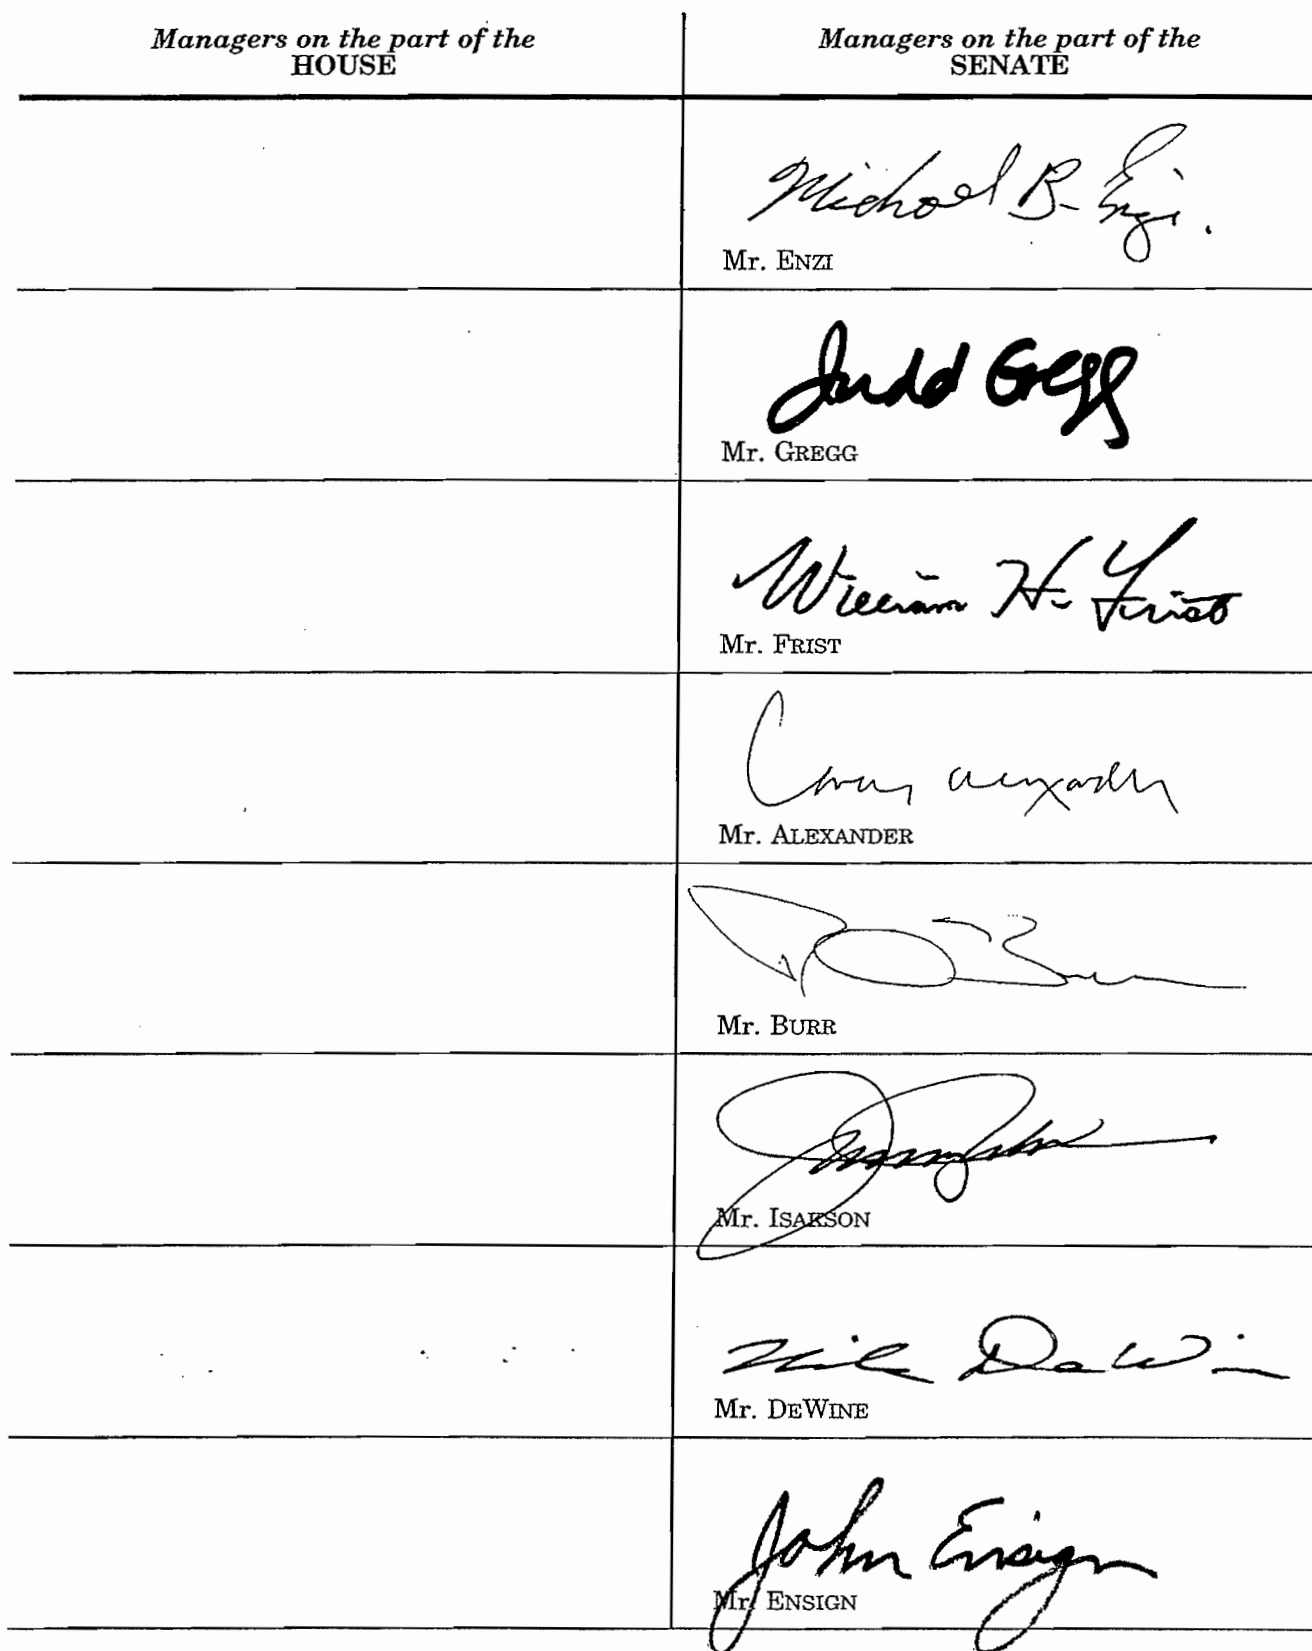 Managers on the part of the
HOUSE
Managers on the part of the
SENATE
Michael B. Enzi
Mr. ENZI
Judd Gregg
Mr. GREGG
William H. Frist
Mr. FRIST
Mr. ALEXANDER
Mr. BURR
Mr. ISAKSON
Mike DeWine
Mr. DEWINE
John Ensign
Mr. ENSIGN